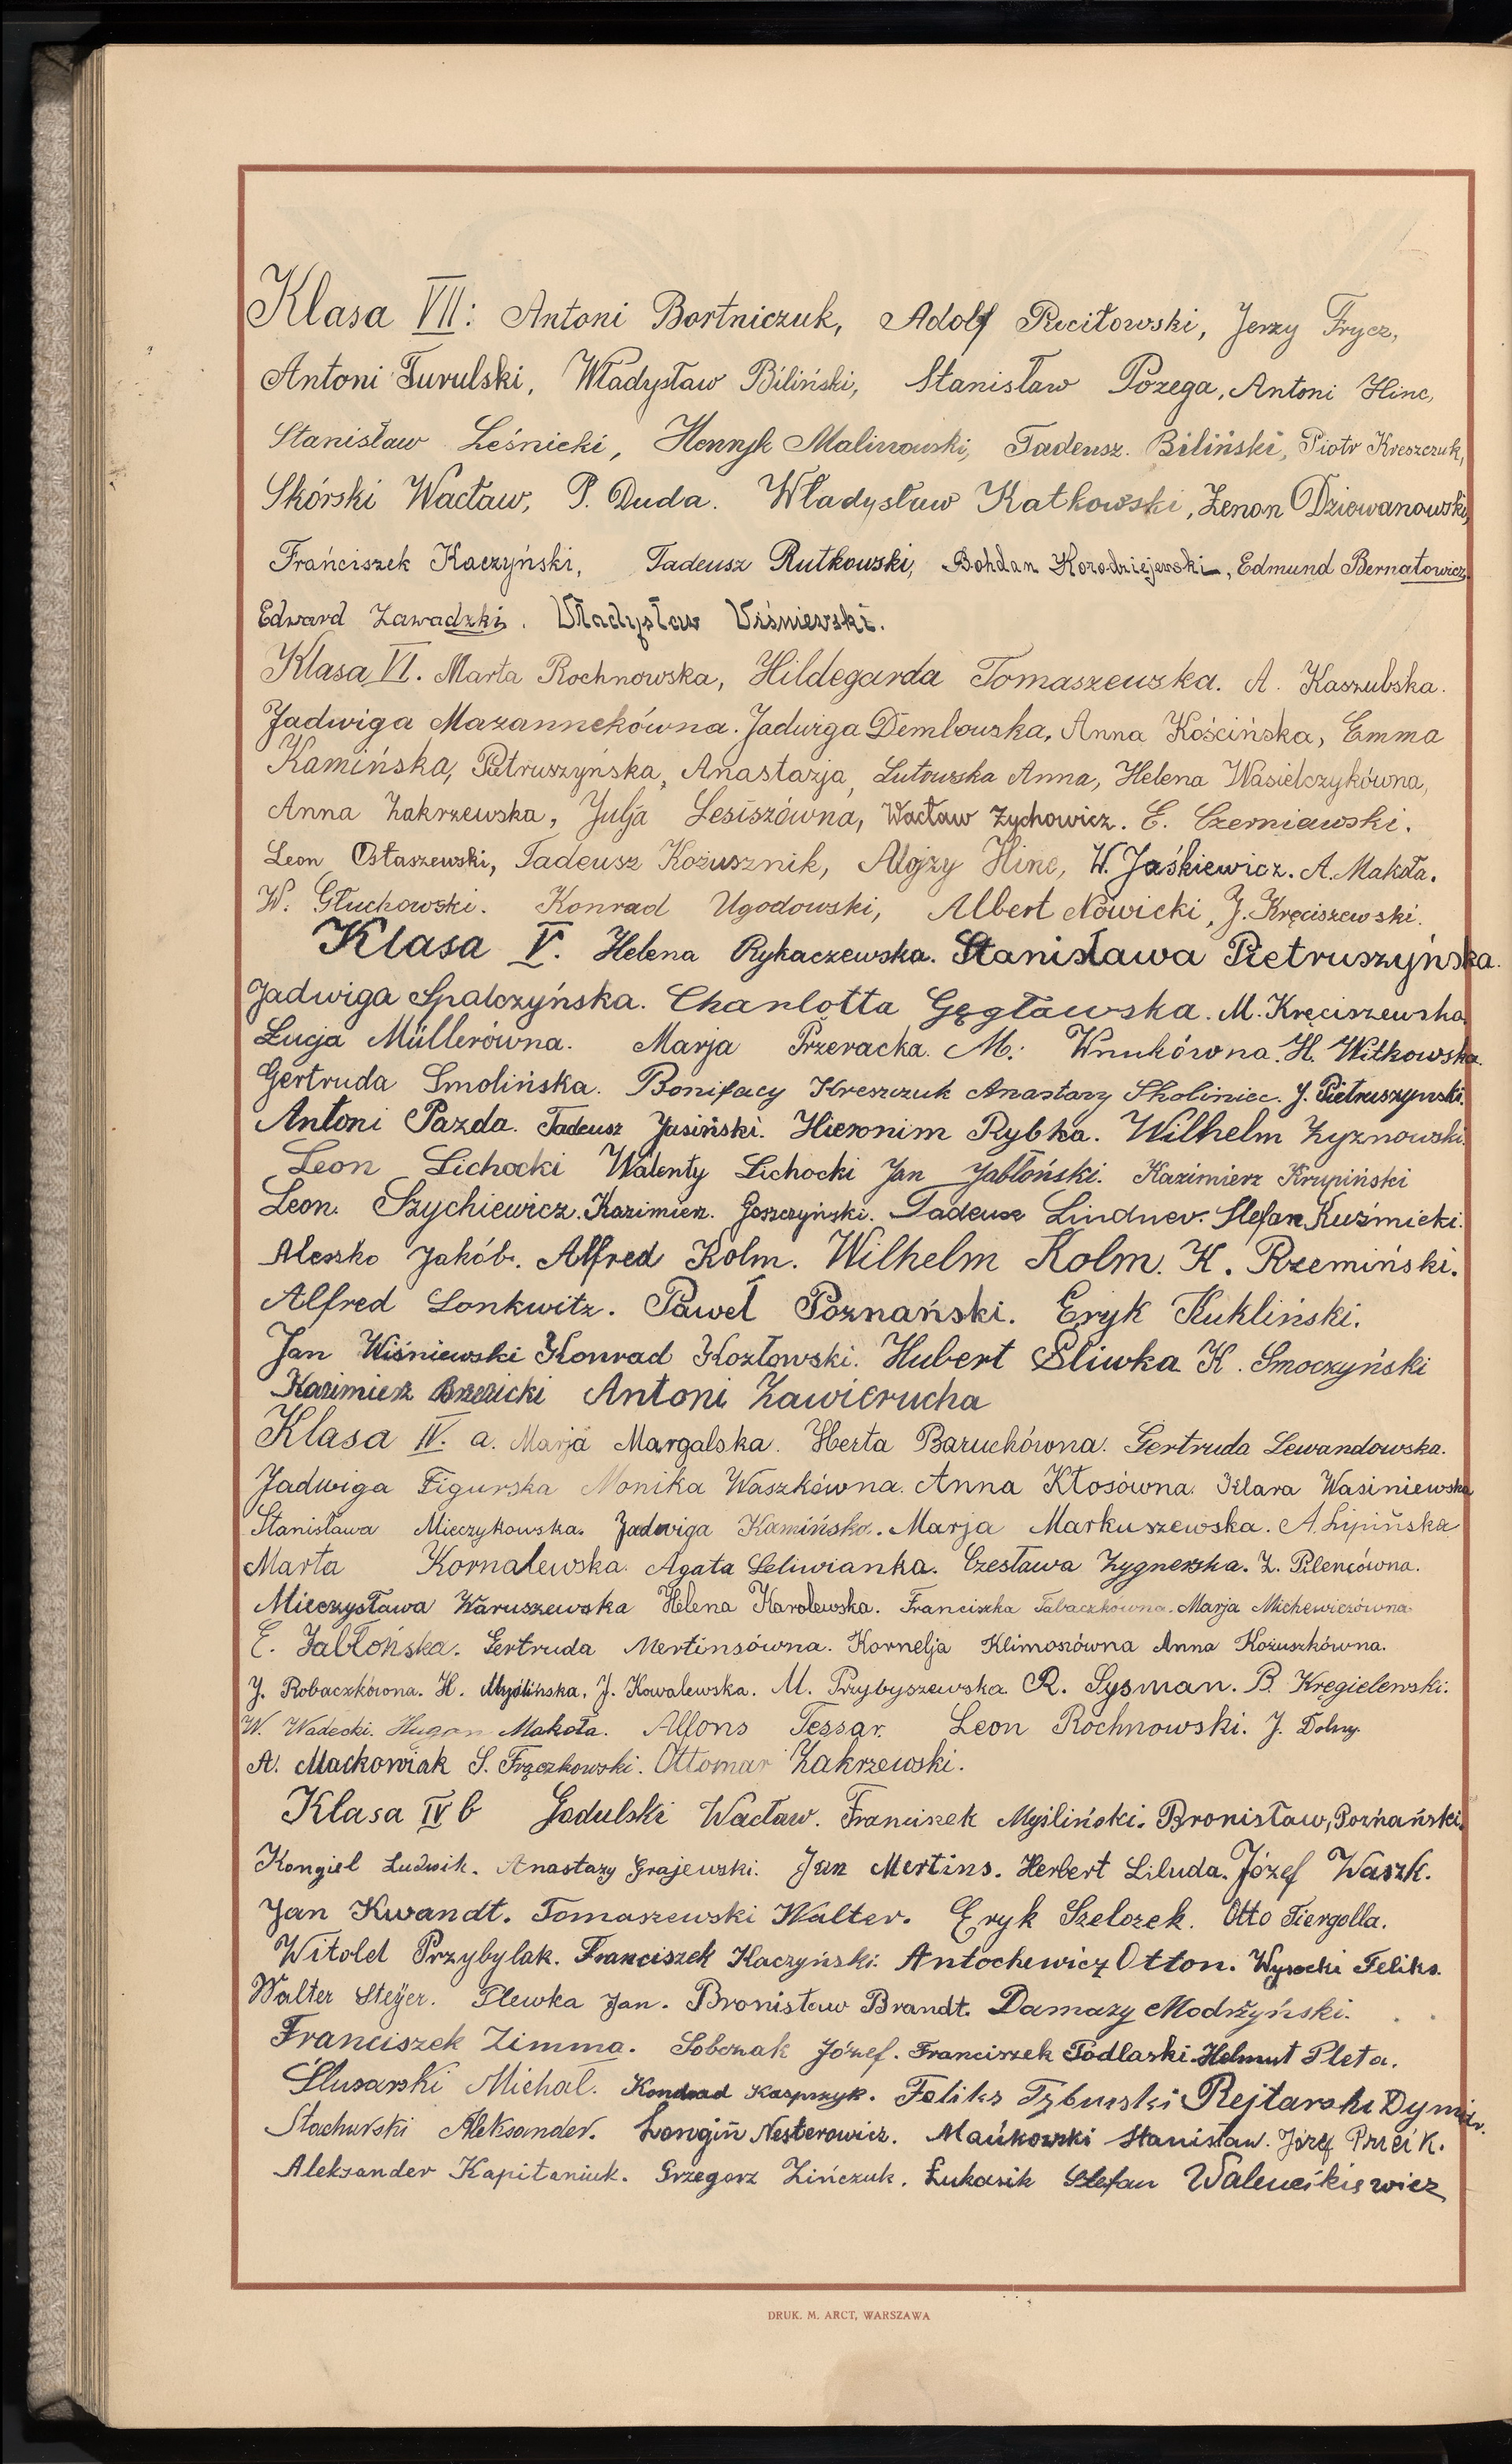 Klasa VII: Antoni Bortniczuk, Adolf Recitowski, Jerzy Frycz,
Antoni Turulski, Władysław Biliński, Stanisław Pozega, Antoni Hinc,
Stanisław Leśnicki, Henryk Malinowski, Tadeusz. Biliński, Piotr Kreszczuk,
Skórski Wacław, P. Duda. Władysław Katkowski, Zenon Dziewanowski,
Franciszek Kaczyński, Tadeusz Rutkowski, Bohdan, Edmund Bernatowicz,
Edward Zawadzki. Władysław Wiśniewski.
Klasa VI. Marta Rochnowska, Hildegarda Tomaszewska. A. Kaszubska.
Jadwiga Mazannekówna. Jadwiga Dembowska, Anna Kościńska, Emma
Kamińska, Pietruszyńska, Anastazja, Lutowska Anna, Helena Wasielczykówna,
Anna Zakrzewska, Julja Lesiszówna, Wacław Zychowicz. E. Czerniawski.
Leon Ostaszewski, Tadeusz Kożusznik, Alojzy Hinc, W. Jaśkiewicz. A. Makota.
W. Głuchowski. Konrad Ugodowski, Albert Nowicki, J. Kręciszewski.
Klasa V. Helena Rykaczewska. Stanisława Pietruszyńska.
Jadwiga Spalczyńska. Charlotta Gęgławska. M. Kręciszewska
Łucja Müllerówna. Marja Przeracka. M. Wnukówna. H. Witkowska.
Gertruda Smolińska. Bonifacy Kreszczuk Anastazy Skoliniec. J. Pietruszyński.
Antoni Pazda. Tadeusz Jasiński. Hieronim Rybka. Wilhelm Zyznowski.
Leon Lichocki Walenty Lichocki Jan Jabłoński. Kazimierz Krupiński
Leon. Szychiewicz. Kazimierz. Goszczyński. Tadeusz Lindner. Stefan Kuźmicki.
Aleszko Jakób. Alfred Kolm. Wilhelm Kolm. K. Rzemiński.
Alfred Lonkwitz. Paweł Poznański. Eryk Kukliński.
Jan Wiśniewski Konrad Kozłowski. Hubert Śliwka K. Smoczyński
Kazimierz Brzezicki Antoni Zawierucha
Klasa IV. a. Marja Margalska. Herta Baruchówna. Gertruda Lewandowska.
Jadwiga Figurska Monika Waszkówna. Anna Kłosówna. Klara Wasiniewska
Stanisława Mieczykowska. Jadwiga Kamińska. Marja Markuszewska. A. Lipińska
Marta Kornalewska. Agata Leliwianka. Czesława Zygnerska. Z. Pilencówna.
Mieczysława Waruszewska Helena Karolewska. Franciszka Tabaczkówna. Marja Michewiczówna.
E. Jabłońska. Gertruda Mertinsówna. Kornelja Klimoszówna Anna Kożuszkówna.
J. Robaczkówna. H. Myślińska. J. Kowalewska. M. Przybyszewska R. Sysman. B. Kręgielewski.
W. Wadecki. Hugon Makota. Alfons Tessar. Leon Rochnowski. J. Dolny.
A. Maćkowiak S. Frączkowski. Ottomar Zakrzewski.
Klasa IV b Godulski Wacław. Franciszek Myśliński. Bronisław, Poznański.
Kongiel Ludwik. Anastazy Grajewski. Jan Mertins. Herbert Liluda. Józef Waszk.
Jan Kwandt. Tomaszewski Walter. Eryk Szelozek. Otto Tiergolla.
Witold Przybylak. Franciszek Kaczyński. Antochewicz Otton. Wysocki Feliks.
Walter Steyer. Plewka Jan. Bronisław Brandt. Damazy Modrzyński.
Franciszek Zimma. Sobczak Józef. Franciszek Podlaski. Helmut Pleta.
Ślusarski Michał. Kondrad Kasprzyk. Feliks Tyburski Rejtarski Dymitr.
Stachurski Aleksander. Longin Nesterowicz. Mańkowski Stanisław. Józef Prucik.
Aleksander Kapitaniuk. Grzegorz Zińczuk. Łukasik Stefan Walencikiewicz
DRUK. M. ARCT, WARSZAWA